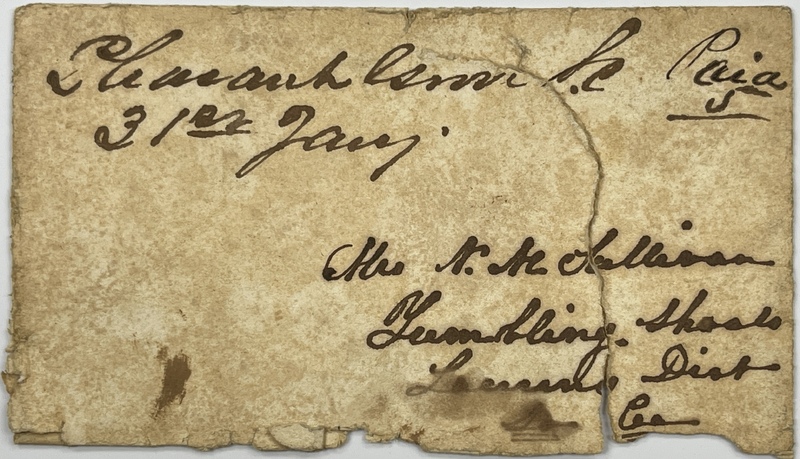 Pleasant Grove S.C Paid
5
31st Jany.
Mrs N. M. Sullivan
Tumbling Shoals
Laurens Dist
So Ca